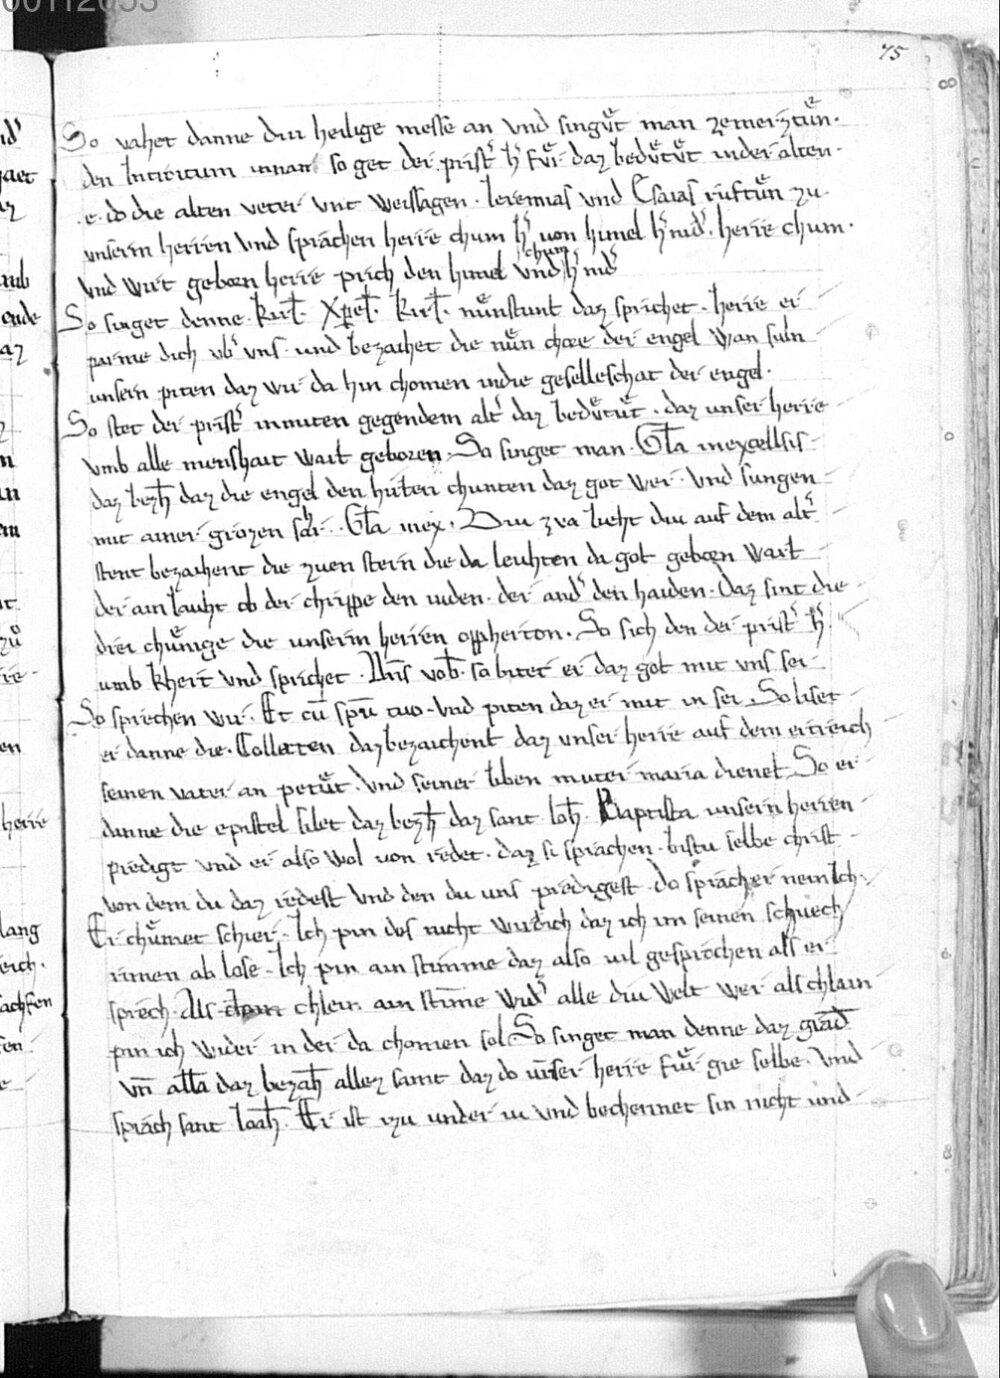 00112053
75
So vahet danne diu heilige messe an vnd singuͤt man ze mer ztuͤn.
den Introitum so get der prist' h' fuͤr daz beduͤtuͤt in der alten.
.e. do die alten veter vnt weissagen. Ieremias vnd Esaias rufftuͤn zu
unserm herren vnd sprachen herre chum h' von himel h' nid'. herre chum.
vnd wirt geborn herre prich den himel vnd chum h' nid'
So singet denne. kirł. xpeł. kirł. nuͤnstunt daz sprichet. herre er
parme dich vb' vns. vnd bezaichet die nuͤn chore der engel wan suln
unsern piten daz wir da hin chomen in die geselleschat der engel.
So stet der prist' in miten gegen dem alt' daz beduͤtuͤt. daz unser herre
vmb alle menshait wart geboren. So singet man. Gła in excellsis
daz bezh daz die engel den hirten chunten daz got wer. vnd sungen
mit ainer grozen schar. Gła in ex. Diu zva lieht diu auf dem alt'
stent bezaihent die zuen stern die da leuhten da got geborn wart
der ain lauht ob der chrippe den iuden. der and' den haiden. Daz sint die
drei chuͤnige die unserm herren oppherton. So sich den der prist' h'
umb khert vnd sprichet. Dn̄s vob. so bitet er daz got mit vns sei
So sprechen wir. Et cū spū tuo. vnd piten daz er mit in sei. So liset
er danne die. Collecten daz bezaichent daz vnser herre auf dem ertreich
seinen vater an petuͤt. vnd seiner liben muter maria dienet. So er
danne die epistel liset daz bezh daz sant Ioh. Baptista unsern herren
predigt vnd er also wol von redet. daz si sprachen. bistu selbe christ
von dem du daz redest vnd den du uns predigest. do sprach er nein Ich.
Er chuͤmet schier. Ich pin dos nicht wirdich daz ich im seinen schuech
rimen ab lose. Ich pin ain stimme daz also vil gesprochen als er
sprech. Als chlein ain stīme wid' alle diu welt wer als chlain
pin ich wider in der da chomen sol. So singet man denne daz grad
vn̄ alla daz bezaih allez samt daz do unser herre fuͤr gie selbe. vnd
sprach sant Ioah. Er ist izu under iu vnd bechennet sin nicht und